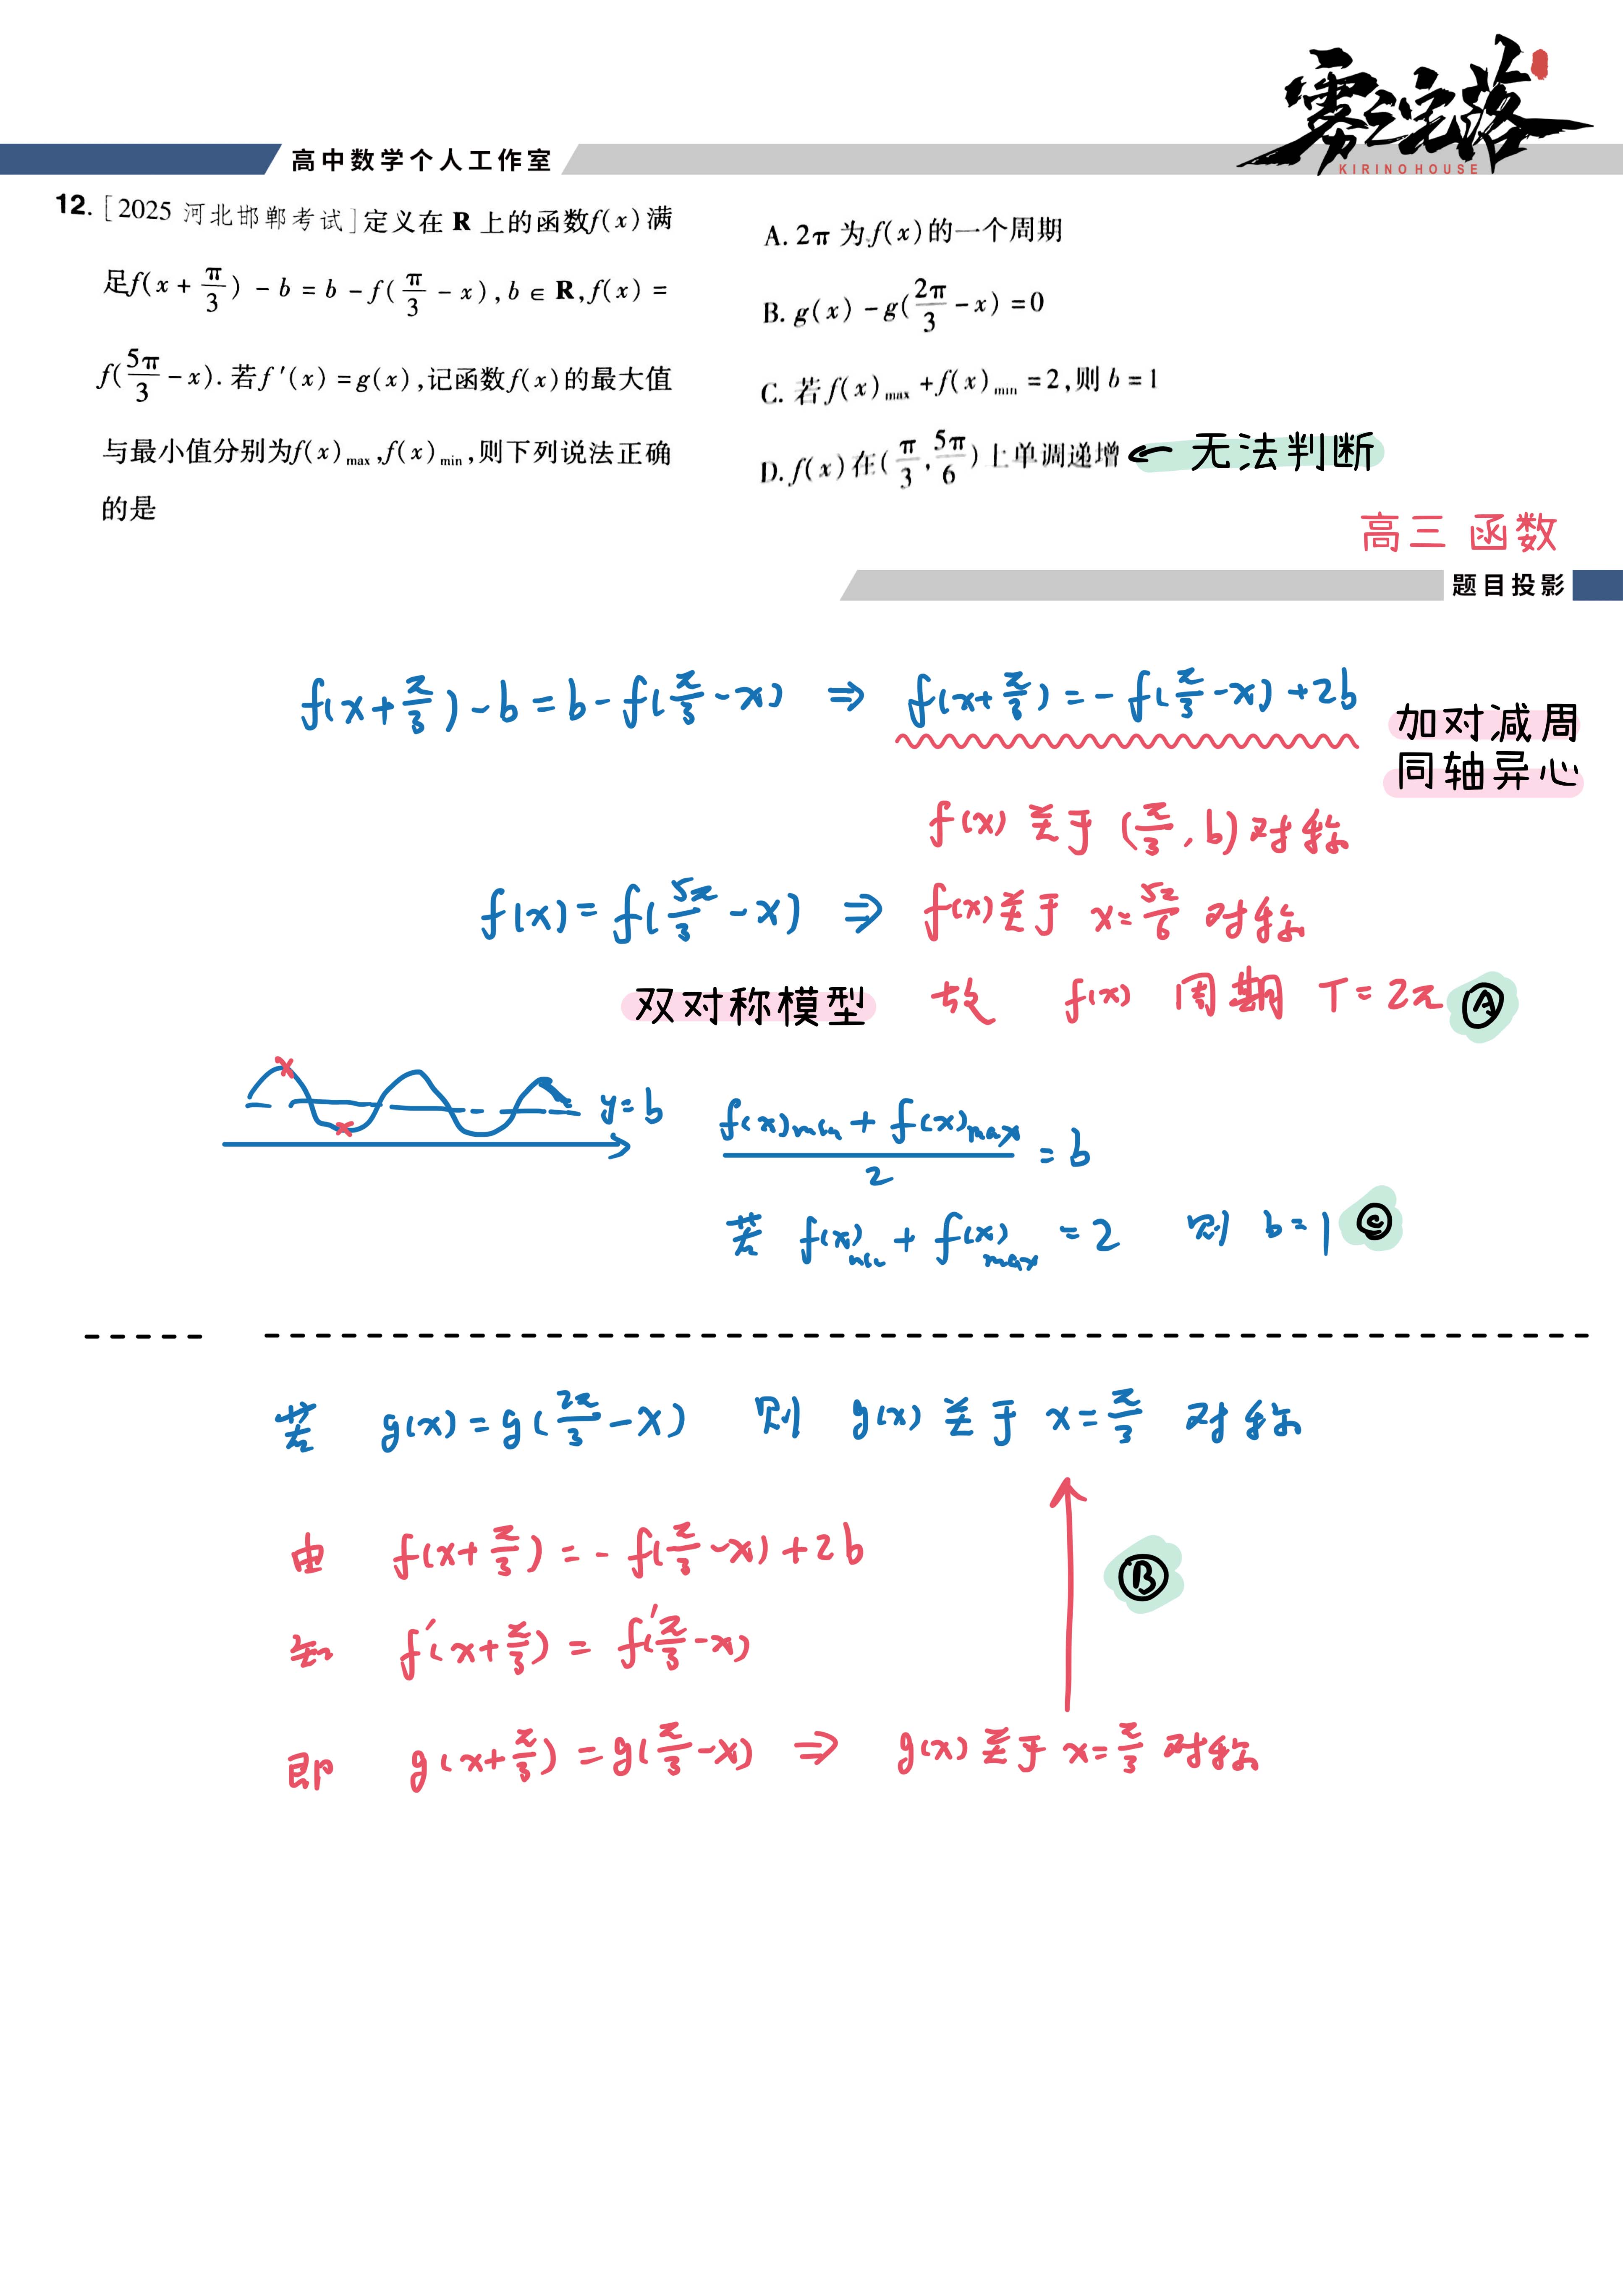 雾之宅落
KIRINO HOUSE
高中数学个人工作室
12. [2025 河北邯郸考试]定义在 R 上的函数f(x)满
足f(x + π/3) - b = b - f(π/3 - x), b ∈ R, f(x) =
f(5π/3 - x). 若f'(x) = g(x), 记函数f(x)的最大值
与最小值分别为f(x)max, f(x)min, 则下列说法正确
的是
A. 2π 为f(x)的一个周期
B. g(x) - g(2π/3 - x) = 0
C. 若f(x)max + f(x)min = 2, 则 b = 1
D. f(x)在(π/3, 5π/6)上单调递增 ← 无法判断
高三 函数
题目投影
f(x+π/3)-b=b-f(π/3-x) ⇒ f(x+π/3)=-f(π/3-x)+2b
加对减周
同轴异心
f(x) 关于 (π/3, b) 对称
f(x)=f(5π/3-x) ⇒ f(x)关于 x=5π/6 对称
双对称模型 故 f(x) 周期 T=2π Ⓐ
y=b
(f(x)min + f(x)max)/2 = b
若 f(x)min + f(x)max = 2 则 b=1 Ⓒ
若 g(x)=g(2π/3-x) 则 g(x) 关于 x=π/3 对称
由 f(x+π/3)=-f(π/3-x)+2b
Ⓑ
知 f'(x+π/3)=f'(π/3-x)
即 g(x+π/3)=g(π/3-x) ⇒ g(x)关于 x=π/3 对称